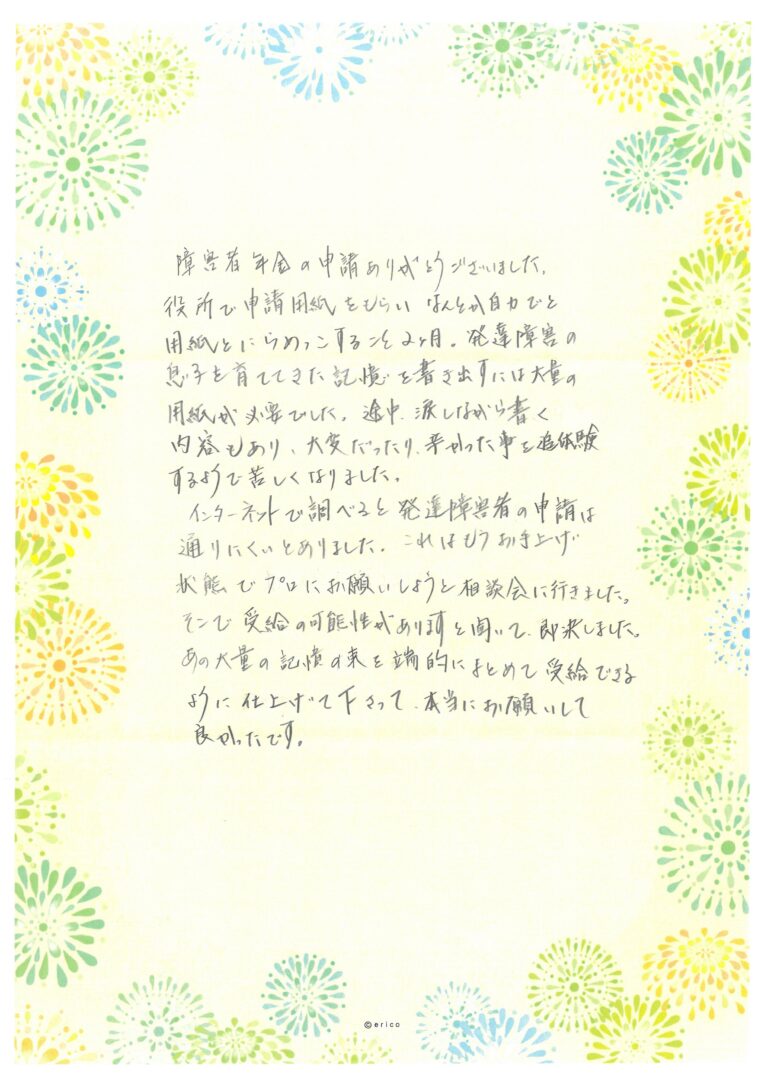 障害者年金の申請ありがとうございました。
役所で申請用紙をもらい なんとか自力でと
用紙とにらめっこすること2ヶ月。発達障害の
息子を育ててきた記憶を書き出すには大量の
用紙が必要でした。途中、涙しながら書く
内容もあり、大変だったり、辛かった事を追体験
するようで苦しくなりました。
インターネットで調べると発達障害者の申請は
通りにくいとありました。これはもうお手上げ
状態でプロにお願いしようと相談会に行きました。
そこで受給の可能性がありますと聞いて、即決しました。
あの大量の記憶の束を端的にまとめて受給できる
ように仕上げて下さって、本当にお願いして
良かったです。
©erico